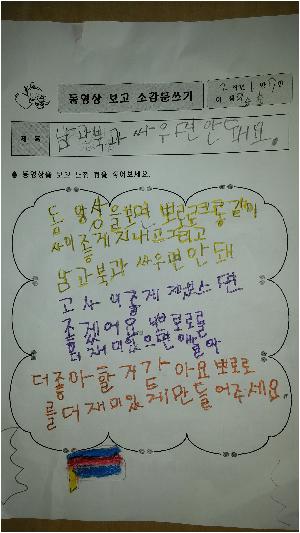 동영상 보고 소감문쓰기
제 목
남과북과 싸우면 안돼요.
동영상을 보고 느낀 점을 적어보세요.
동영상을보면 뽀로로크롱 같이
사이좋게 지내고 그리고
남과북과 싸우면 안돼
고 사이좋게 지냈스면
좋겠어요 뽀로로를
더재미있으면 애들이
더좋아할거가 아요 뽀로로
를 더재미있게만들어주세요